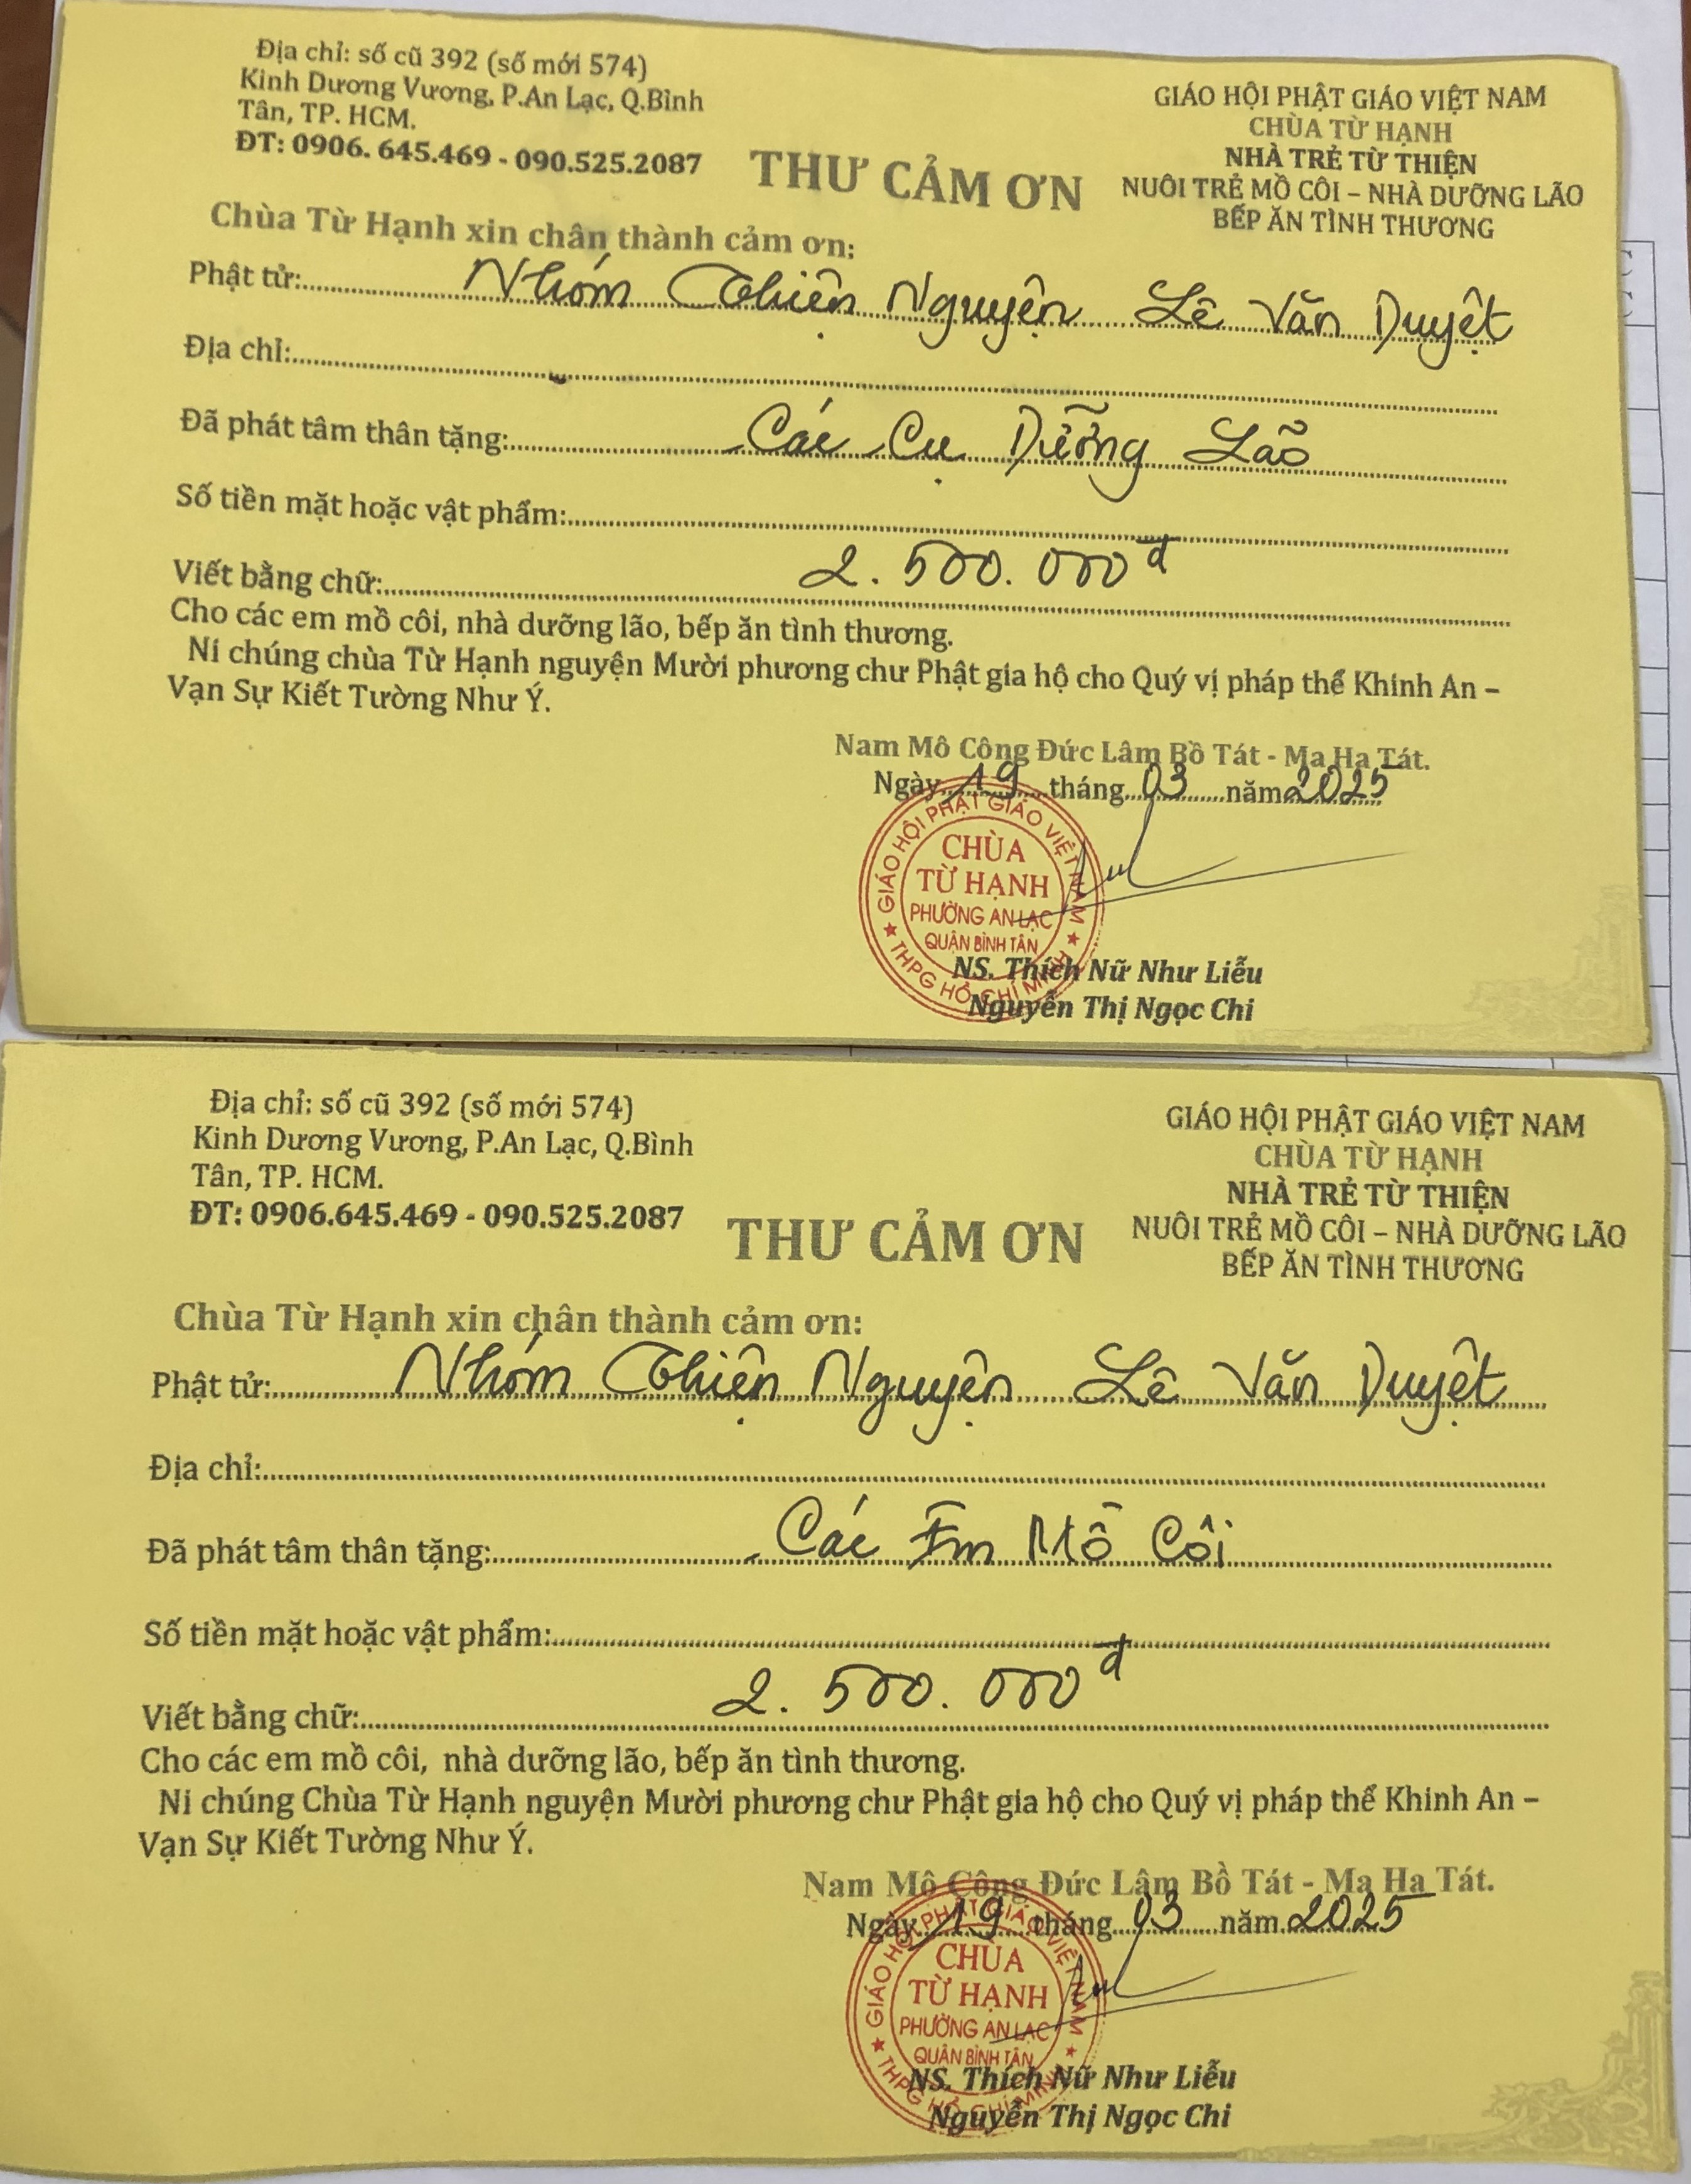 Địa chỉ: số cũ 392 (số mới 574)
Kinh Dương Vương, P.An Lạc, Q.Bình
Tân, TP. HCM.
ĐT: 0906. 645.469 - 090.525.2087
GIÁO HỘI PHẬT GIÁO VIỆT NAM
CHÙA TỪ HẠNH
NHÀ TRẺ TỪ THIỆN
NUÔI TRẺ MỒ CÔI – NHÀ DƯỠNG LÃO
BẾP ĂN TÌNH THƯƠNG
THƯ CẢM ƠN
Chùa Từ Hạnh xin chân thành cảm ơn:
Phật tử: Nhóm Thiện Nguyện Lê Văn Duyệt
Địa chỉ:
Đã phát tâm thân tặng: Các Cụ Dưỡng Lão
Số tiền mặt hoặc vật phẩm:
Viết bằng chữ: 2.500.000đ
Cho các em mồ côi, nhà dưỡng lão, bếp ăn tình thương.
Ni chúng chùa Từ Hạnh nguyện Mười phương chư Phật gia hộ cho Quý vị pháp thể Khinh An –
Vạn Sự Kiết Tường Như Ý.
Nam Mô Công Đức Lâm Bồ Tát - Ma Ha Tát.
Ngày 19 tháng 03 năm 2025
GIÁO HỘI PHẬT GIÁO VIỆT NAM
CHÙA
TỪ HẠNH
PHƯỜNG AN LẠC
QUẬN BÌNH TÂN
THPG HỒ CHÍ MINH
NS. Thích Nữ Như Liễu
Nguyễn Thị Ngọc Chi
Địa chỉ: số cũ 392 (số mới 574)
Kinh Dương Vương, P.An Lạc, Q.Bình
Tân, TP. HCM.
ĐT: 0906.645.469 - 090.525.2087
GIÁO HỘI PHẬT GIÁO VIỆT NAM
CHÙA TỪ HẠNH
NHÀ TRẺ TỪ THIỆN
NUÔI TRẺ MỒ CÔI – NHÀ DƯỠNG LÃO
BẾP ĂN TÌNH THƯƠNG
THƯ CẢM ƠN
Chùa Từ Hạnh xin chân thành cảm ơn:
Phật tử: Nhóm Thiện Nguyện Lê Văn Duyệt
Địa chỉ:
Đã phát tâm thân tặng: Các Em Mồ Côi
Số tiền mặt hoặc vật phẩm:
Viết bằng chữ: 2.500.000đ
Cho các em mồ côi, nhà dưỡng lão, bếp ăn tình thương.
Ni chúng Chùa Từ Hạnh nguyện Mười phương chư Phật gia hộ cho Quý vị pháp thể Khinh An –
Vạn Sự Kiết Tường Như Ý.
Nam Mô Công Đức Lâm Bồ Tát - Ma Ha Tát.
Ngày 19 tháng 03 năm 2025
GIÁO HỘI PHẬT GIÁO VIỆT NAM
CHÙA
TỪ HẠNH
PHƯỜNG AN LẠC
QUẬN BÌNH TÂN
THPG HỒ CHÍ MINH
NS. Thích Nữ Như Liễu
Nguyễn Thị Ngọc Chi